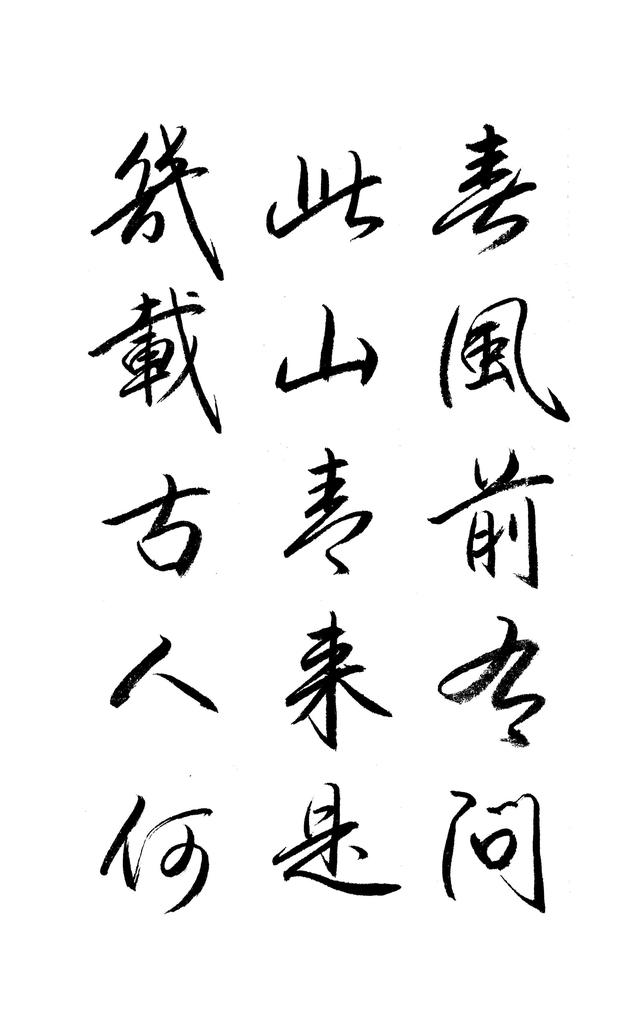 春風前有問
此山青来是
幾載古人何